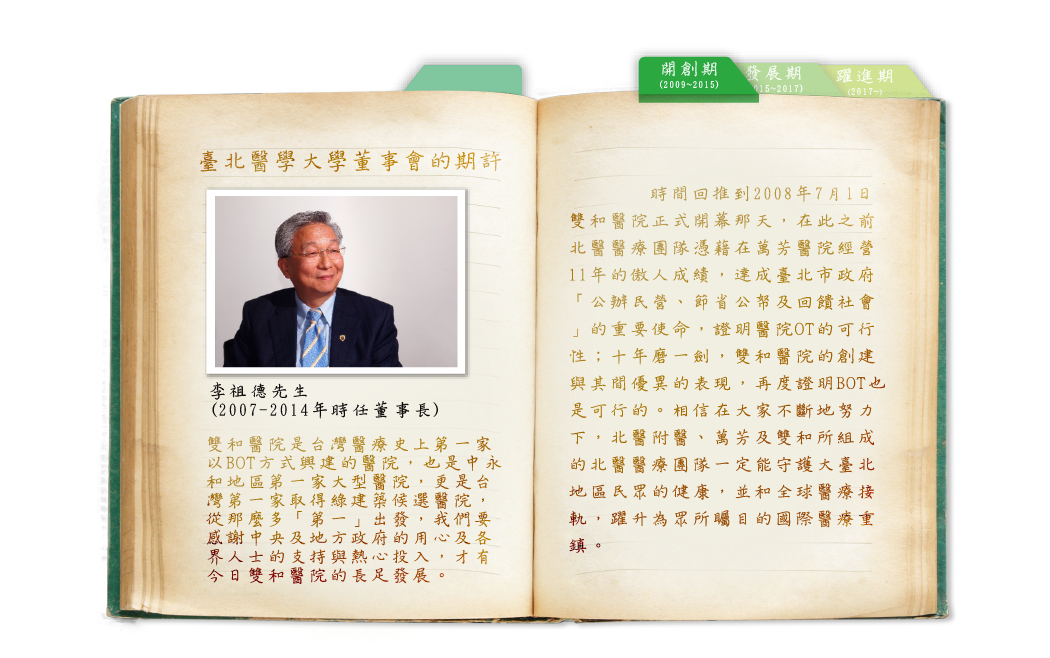 開創期
(2009~2015)
發展期
15~2017)
躍進期
(2017~)
臺北醫學大學董事會的期許
李祖德先生
(2007-2014年時任董事長)
雙和醫院是台灣醫療史上第一家
以BOT方式興建的醫院，也是中永
和地區第一家大型醫院，更是台
灣第一家取得綠建築候選醫院，
從那麼多「第一」出發，我們要
感謝中央及地方政府的用心及各
界人士的支持與熱心投入，才有
今日雙和醫院的長足發展。
時間回推到2008年7月1日
雙和醫院正式開幕那天，在此之前
北醫醫療團隊憑藉在萬芳醫院經營
11年的傲人成績，達成臺北市政府
「公辦民營、節省公帑及回饋社會
」的重要使命，證明醫院OT的可行
性；十年磨一劍，雙和醫院的創建
與其間優異的表現，再度證明BOT也
是可行的。相信在大家不斷地努力
下，北醫附醫、萬芳及雙和所組成
的北醫醫療團隊一定能守護大臺北
地區民眾的健康，並和全球醫療接
軌，躍升為眾所矚目的國際醫療重
鎮。